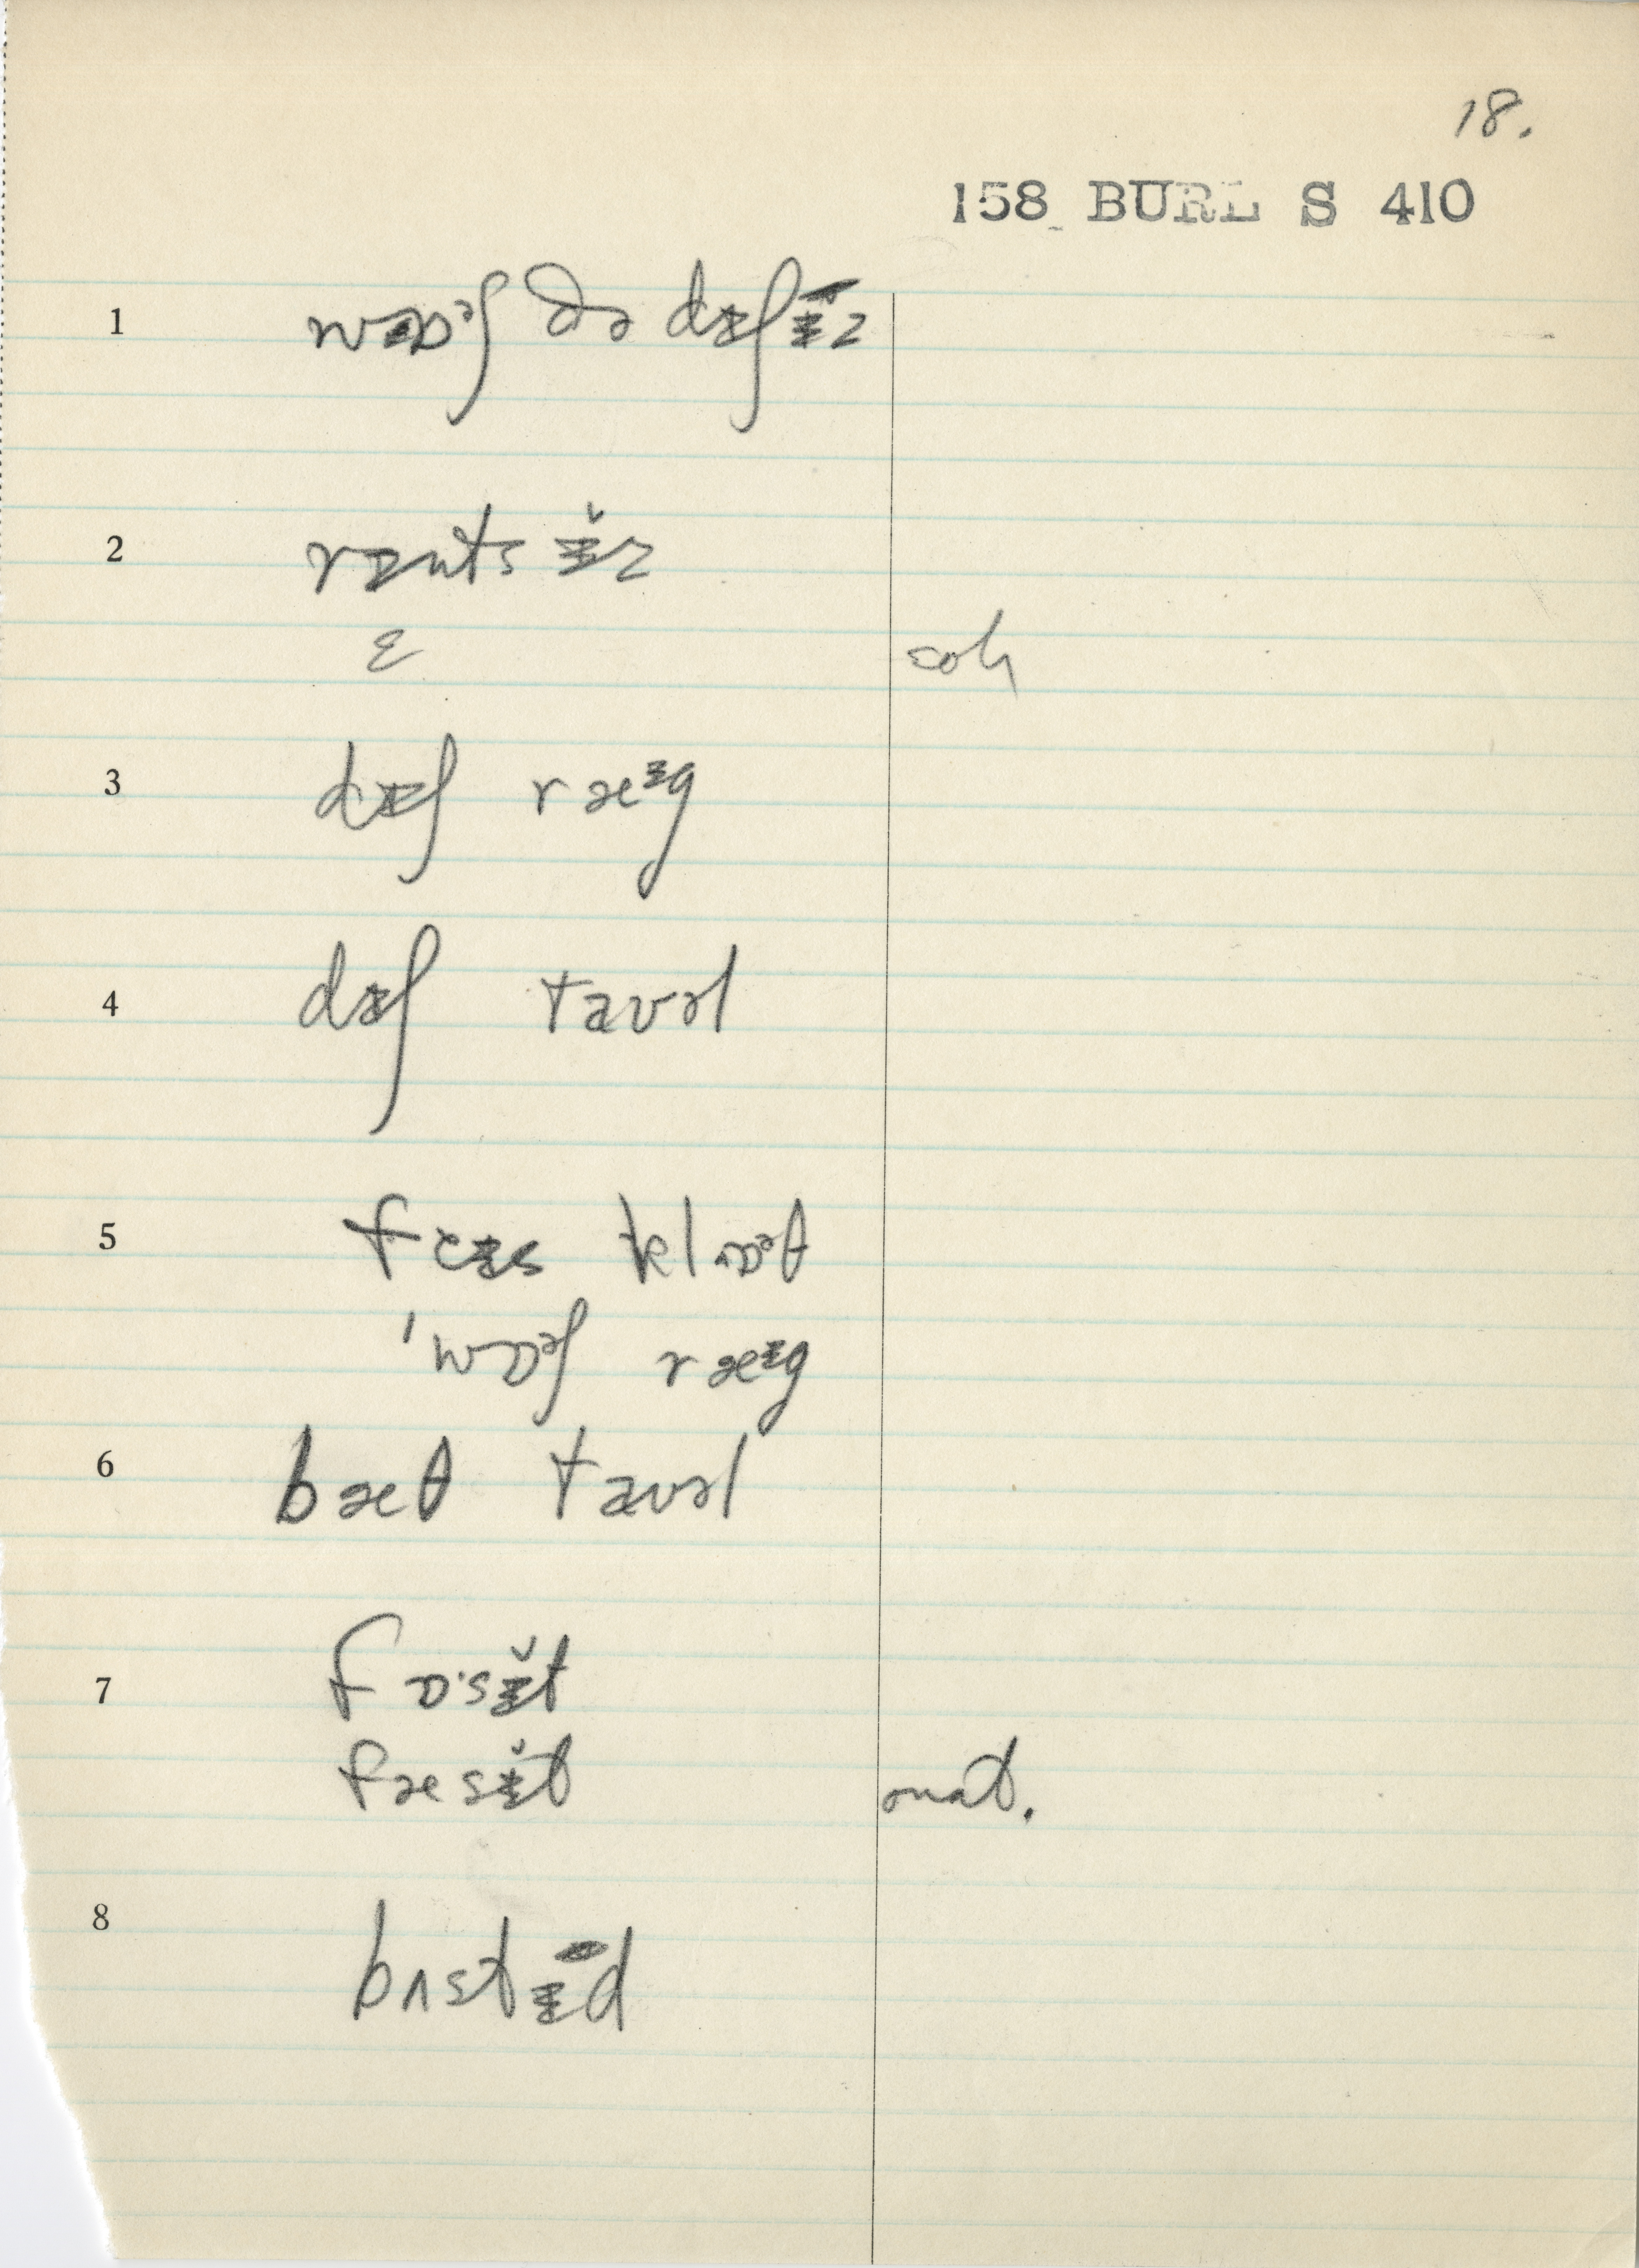 18.
158 BURL S 410
1 wɒᵊʃ ðə dɪʃɪ̈z
2 rɪntsɪ̆z
ɛ coh
3 dɪʃ ræᶦg
4 dɪʃ tavəl
5 feɪs klɒᵊθ
'wɒᵊʃ ræᶦg
6 bæθ tavəl
7 fɒˑsɪ̆t
fæsɪ̆t nat.
8 bʌstɪ̈d